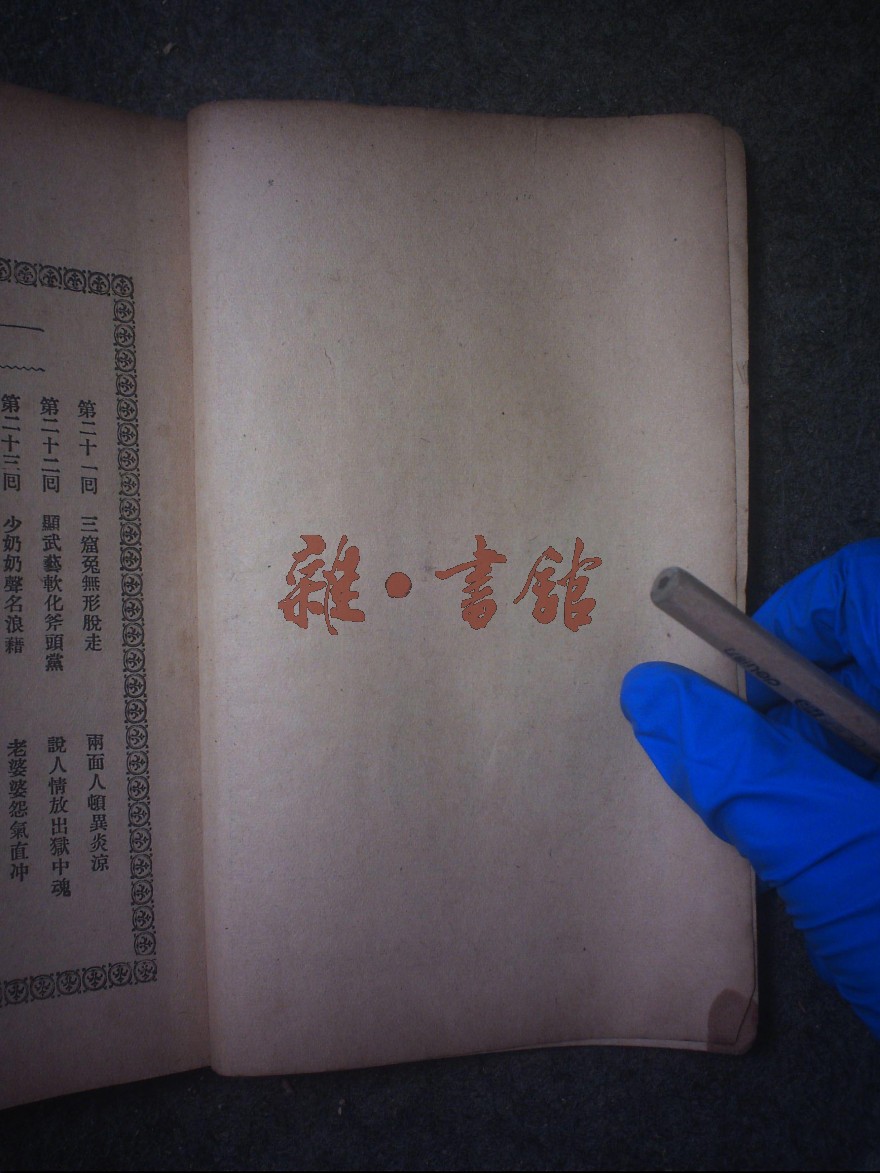 第二十一回 三窟兔無形脫走 兩面人頓異炎涼
第二十二回 顯武藝軟化斧頭黨 說人情放出獄中魂
第二十三回 少奶奶聲名浪藉 老婆婆怨氣直冲
雜·書館